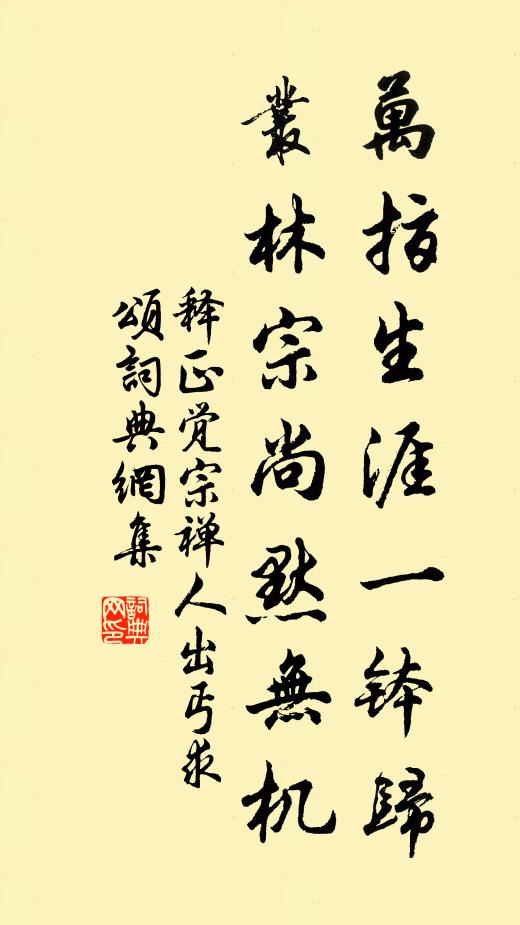 萬指生涯一钵歸
叢林宗尚默無机
释正覚宗禅人出丐求
頌詞典網集
詞典网印